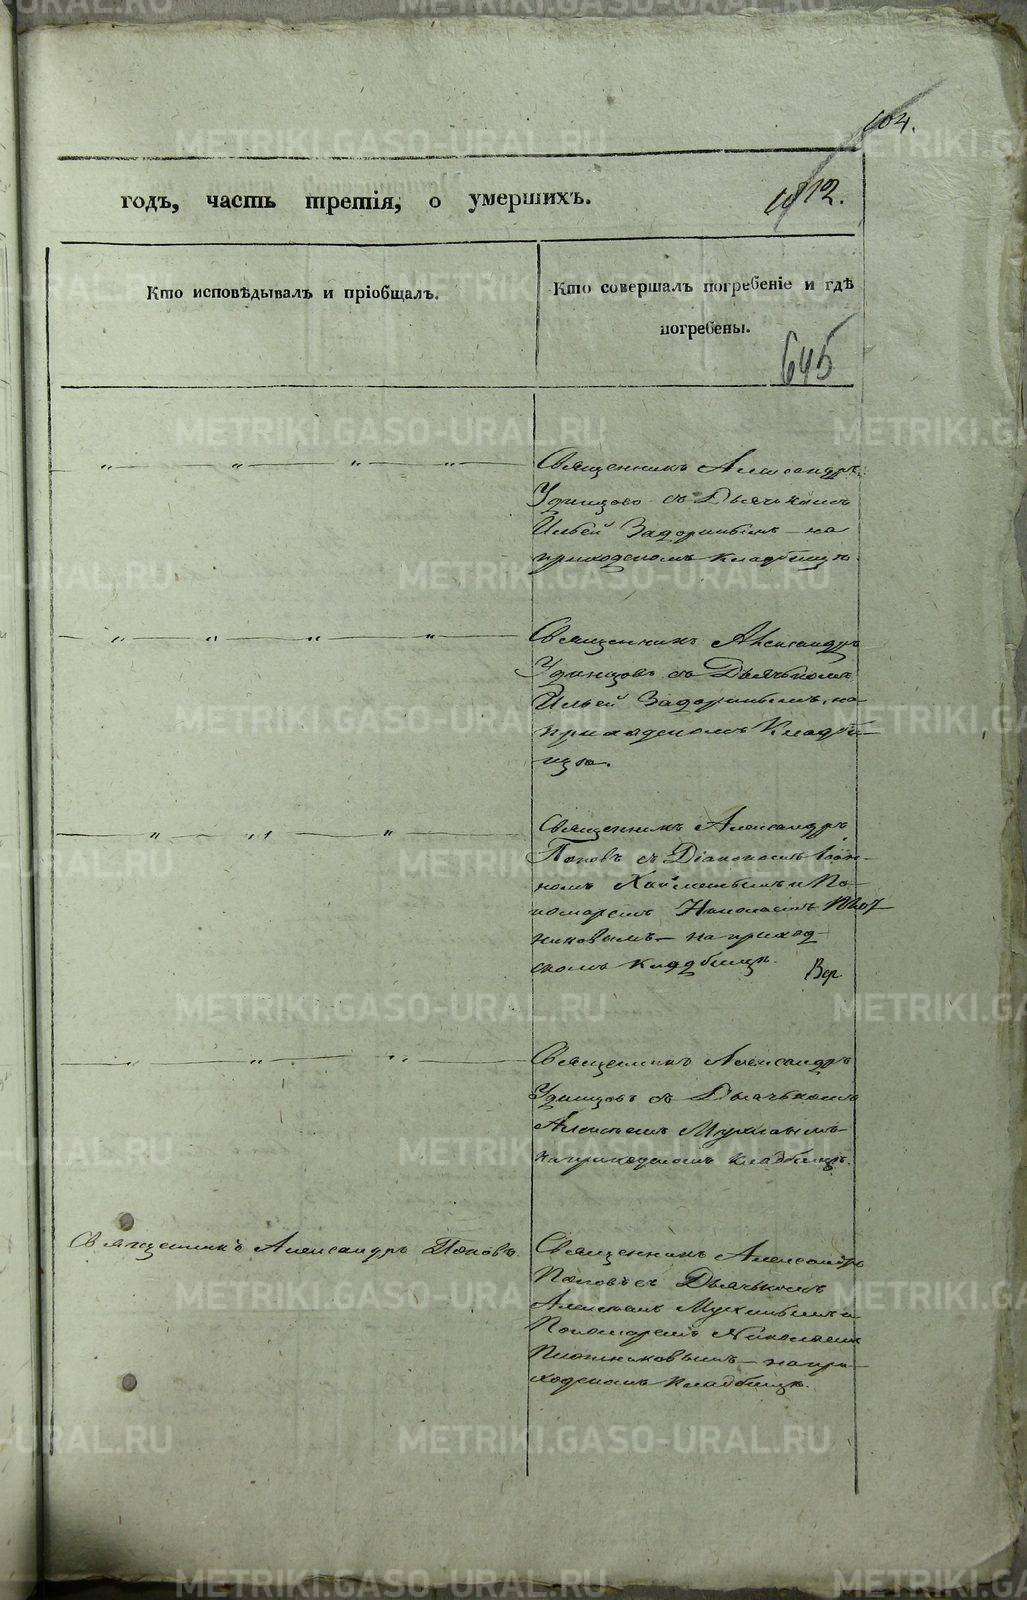 104.
годъ, часть третія, о умершихъ.
1012.
Кто исповѣдывалъ и пріобщалъ.
Кто совершалъ погребеніе и гдѣ
погребены.
645
Священникъ Александръ
Удинцовъ съ Дьячькомъ
Ильей Задоринымъ на
приходскомъ кладбищѣ.
Священникъ Александръ
Удинцовъ съ Дьячькомъ
Ильей Задоринымъ, на
приходскомъ Кладби-
щѣ.
Священникъ Александръ
Поповъ съ Діакономъ Іоан-
номъ и По-
номаремъ
никовымъ — на приход-
скомъ кладбищѣ.
Священникъ Александръ
Удинцовъ съ Дьячькомъ
Алексѣемъ
на приходскомъ кладбищѣ.
Священникъ Александръ Поповъ
Священникъ Александръ
Поповъ съ Дьячькомъ
Алексѣемъ и
Пономаремъ Николаемъ
Плотниковымъ — на при-
ходскомъ кладбищѣ.
METRIKI.GASO-URAL.RU